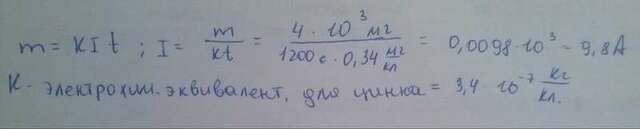 m = kIt ; I = m/kt = 4 · 10³ мг / 1200 с · 0,34 мг/кл = 0,0098·10³ - 9,8А
К - электрохим. эквивалент, для цинка = 3,4 · 10⁻⁷ кг/кл.